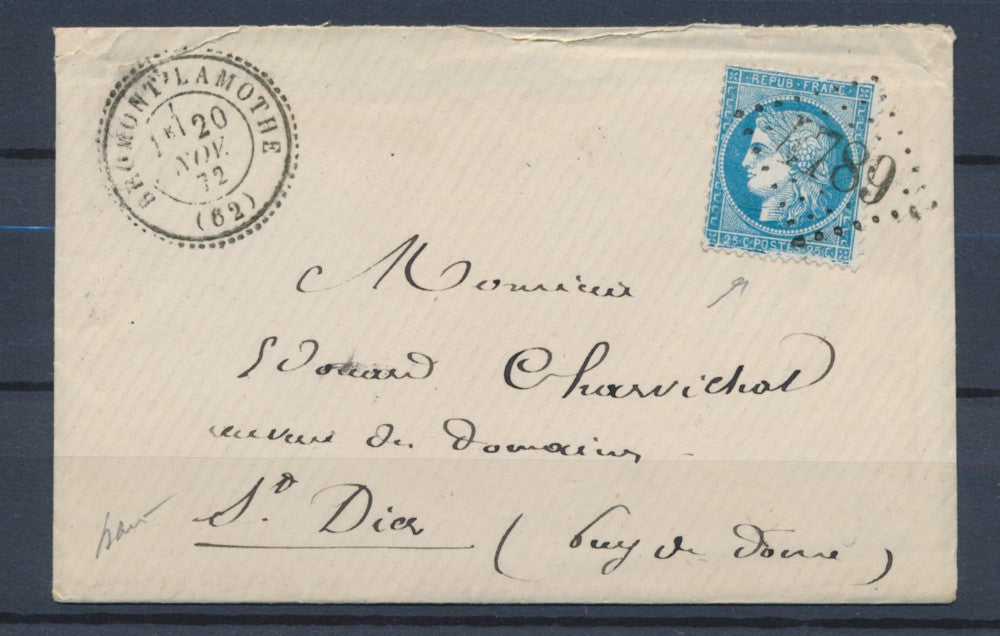 BROMONT-LAMOTHE
1E/ 20
NOV.
72
(62)
REPUB · FRANC ·
25 C · POSTES · 25 C
6824
Monsieur
Edouard Charvichot
receveur des domaines
St Dier (puy de dome)